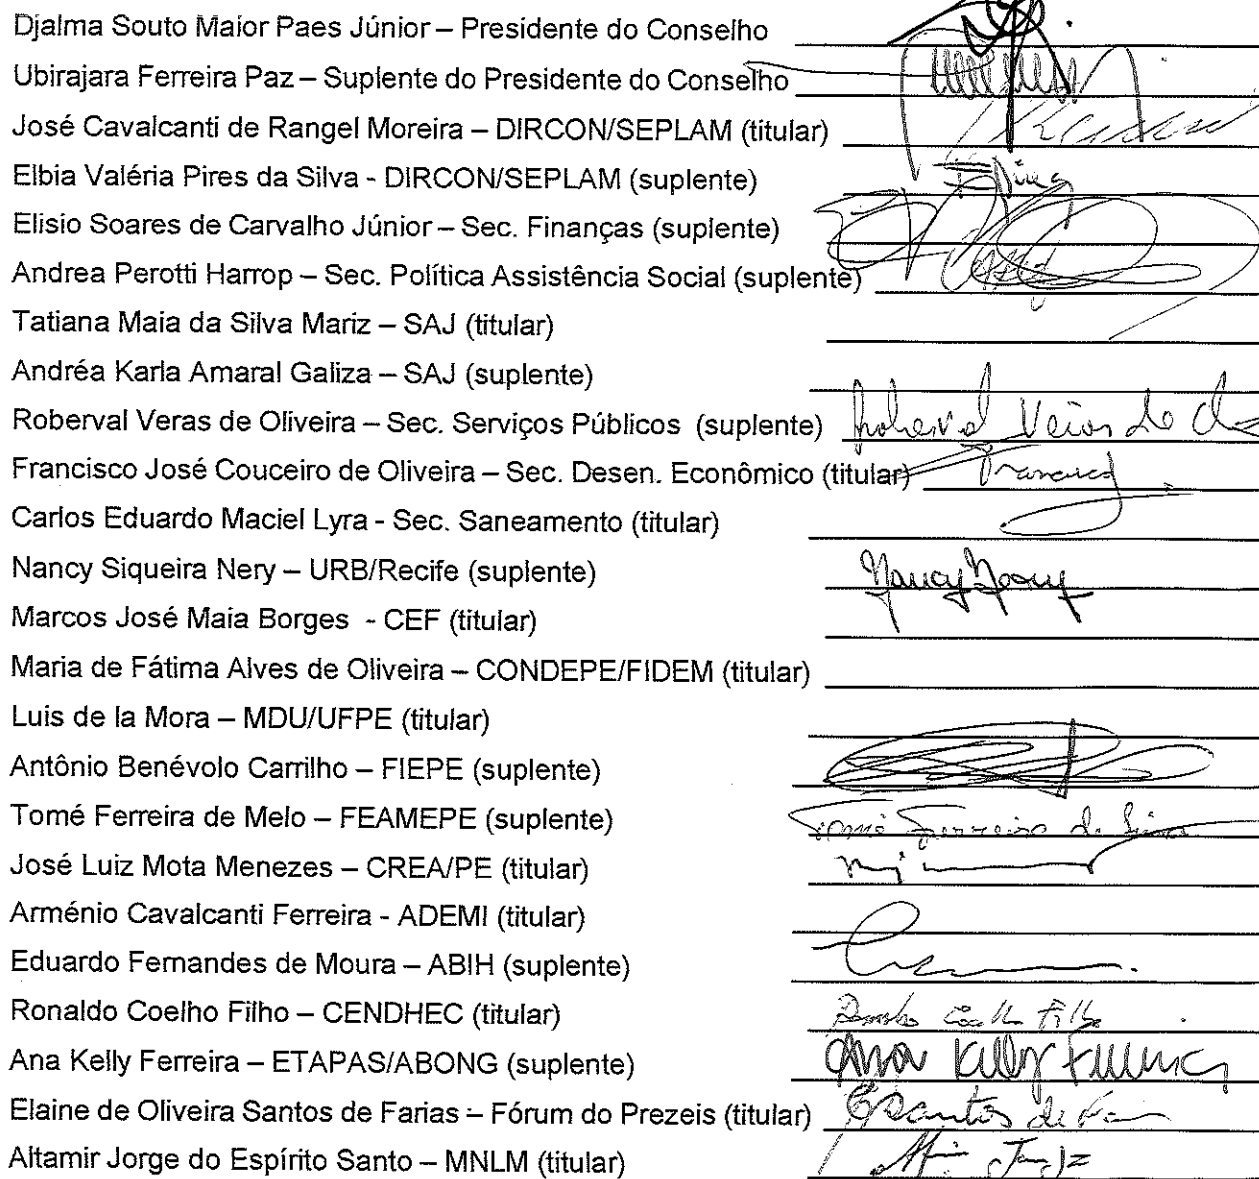 Djalma Souto Maior Paes Júnior – Presidente do Conselho
Ubirajara Ferreira Paz – Suplente do Presidente do Conselho
José Cavalcanti de Rangel Moreira – DIRCON/SEPLAM (titular)
Elbia Valéria Pires da Silva - DIRCON/SEPLAM (suplente) EPires
Elisio Soares de Carvalho Júnior – Sec. Finanças (suplente)
Andrea Perotti Harrop – Sec. Política Assistência Social (suplente)
Tatiana Maia da Silva Mariz – SAJ (titular)
Andréa Karla Amaral Galiza – SAJ (suplente)
Roberval Veras de Oliveira – Sec. Serviços Públicos (suplente) Roberval Veras de
Francisco José Couceiro de Oliveira – Sec. Desen. Econômico (titular) Francisco
Carlos Eduardo Maciel Lyra - Sec. Saneamento (titular)
Nancy Siqueira Nery – URB/Recife (suplente) Nancy Nery
Marcos José Maia Borges - CEF (titular)
Maria de Fátima Alves de Oliveira – CONDEPE/FIDEM (titular)
Luis de la Mora – MDU/UFPE (titular)
Antônio Benévolo Carrilho – FIEPE (suplente)
Tomé Ferreira de Melo – FEAMEPE (suplente) Tomé Ferreira de
José Luiz Mota Menezes – CREA/PE (titular)
Arménio Cavalcanti Ferreira - ADEMI (titular)
Eduardo Fernandes de Moura – ABIH (suplente)
Ronaldo Coelho Filho – CENDHEC (titular) Ronaldo Coelho Filho
Ana Kelly Ferreira – ETAPAS/ABONG (suplente) Ana Kelly Ferreira
Elaine de Oliveira Santos de Farias – Fórum do Prezeis (titular) ESantos de
Altamir Jorge do Espírito Santo – MNLM (titular)